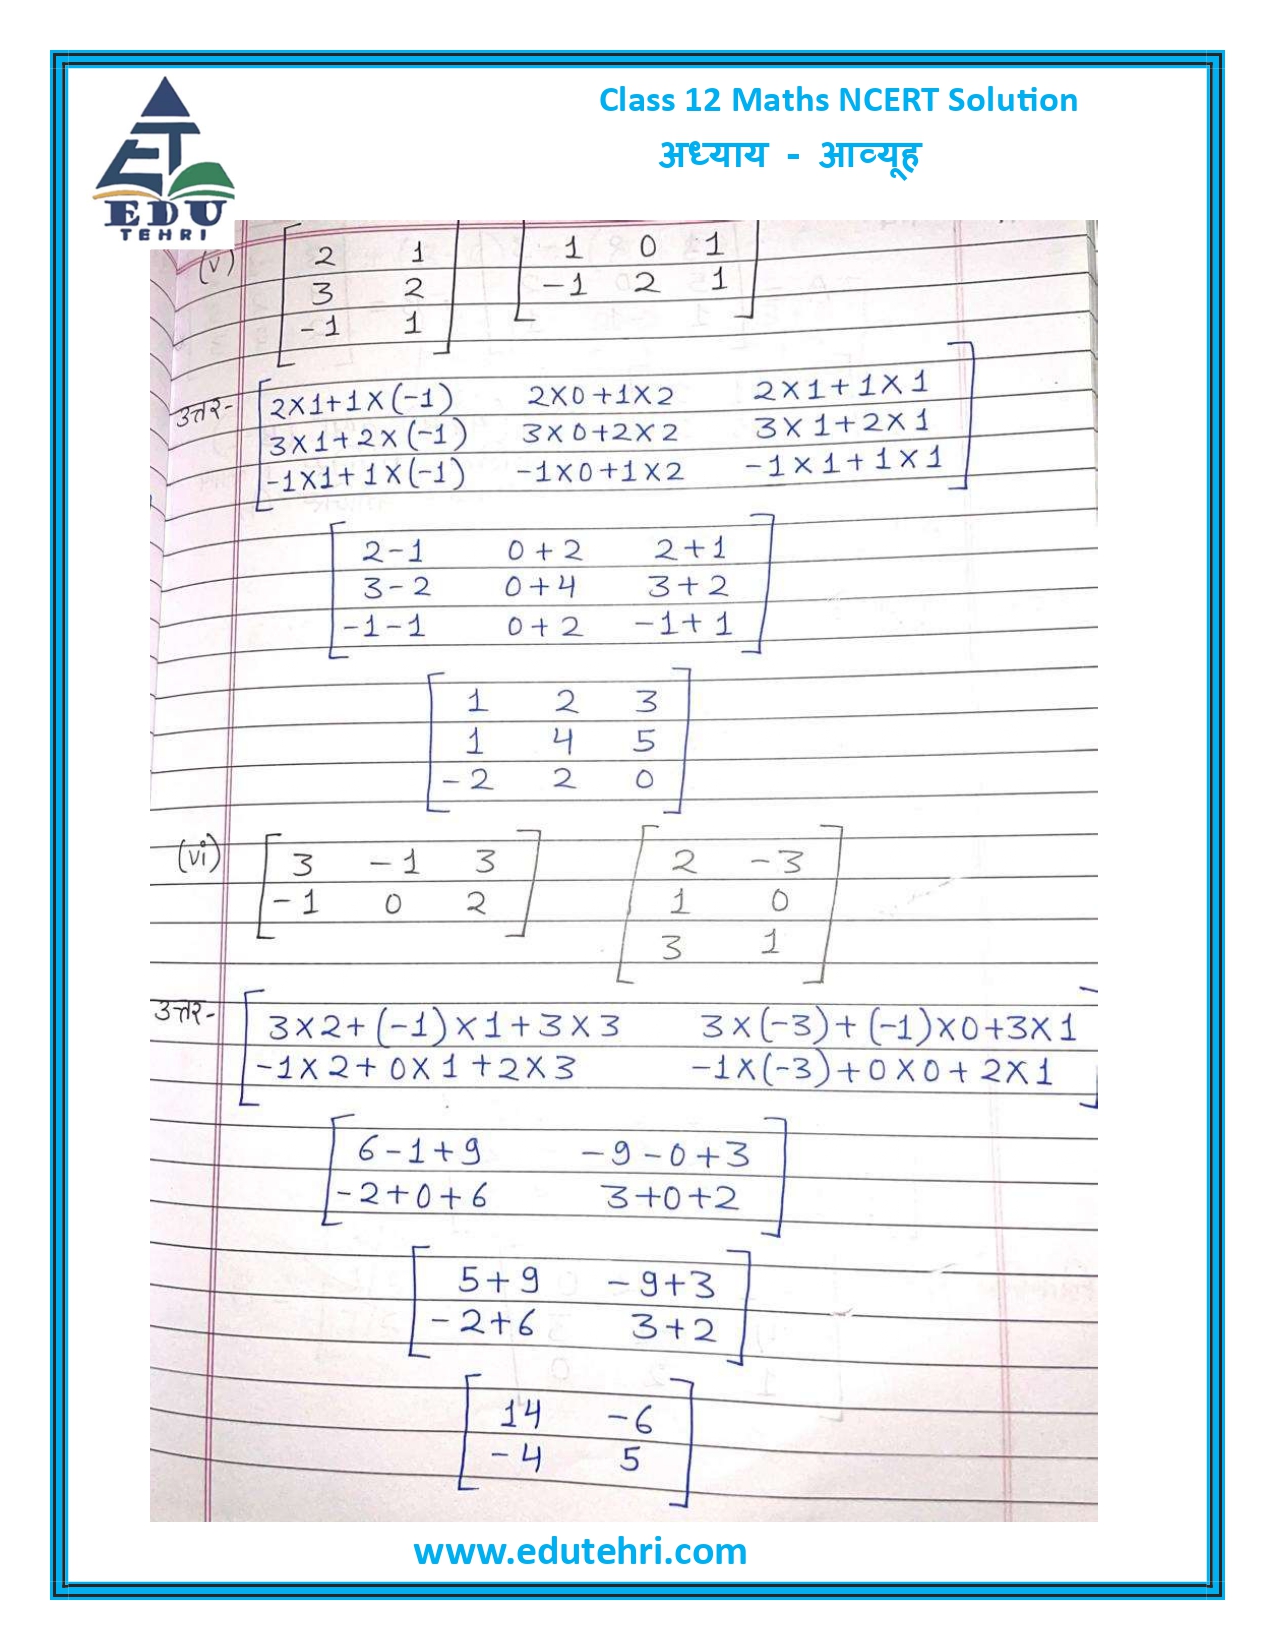 Class 12 Maths NCERT Solution
अध्याय - आव्यूह
EDU
TEHRI
(v) [2 1] [1 0 1]
[3 2] [-1 2 1]
[-1 1]
उत्तर- [2×1+1×(-1) 2×0+1×2 2×1+1×1]
[3×1+2×(-1) 3×0+2×2 3×1+2×1]
[-1×1+1×(-1) -1×0+1×2 -1×1+1×1]
[2-1 0+2 2+1]
[3-2 0+4 3+2]
[-1-1 0+2 -1+1]
[1 2 3]
[1 4 5]
[-2 2 0]
(vi) [3 -1 3] [2 -3]
[-1 0 2] [1 0]
[3 1]
उत्तर- [3×2+(-1)×1+3×3 3×(-3)+(-1)×0+3×1]
[-1×2+0×1+2×3 -1×(-3)+0×0+2×1]
[6-1+9 -9-0+3]
[-2+0+6 3+0+2]
[5+9 -9+3]
[-2+6 3+2]
[14 -6]
[-4 5]
www.edutehri.com